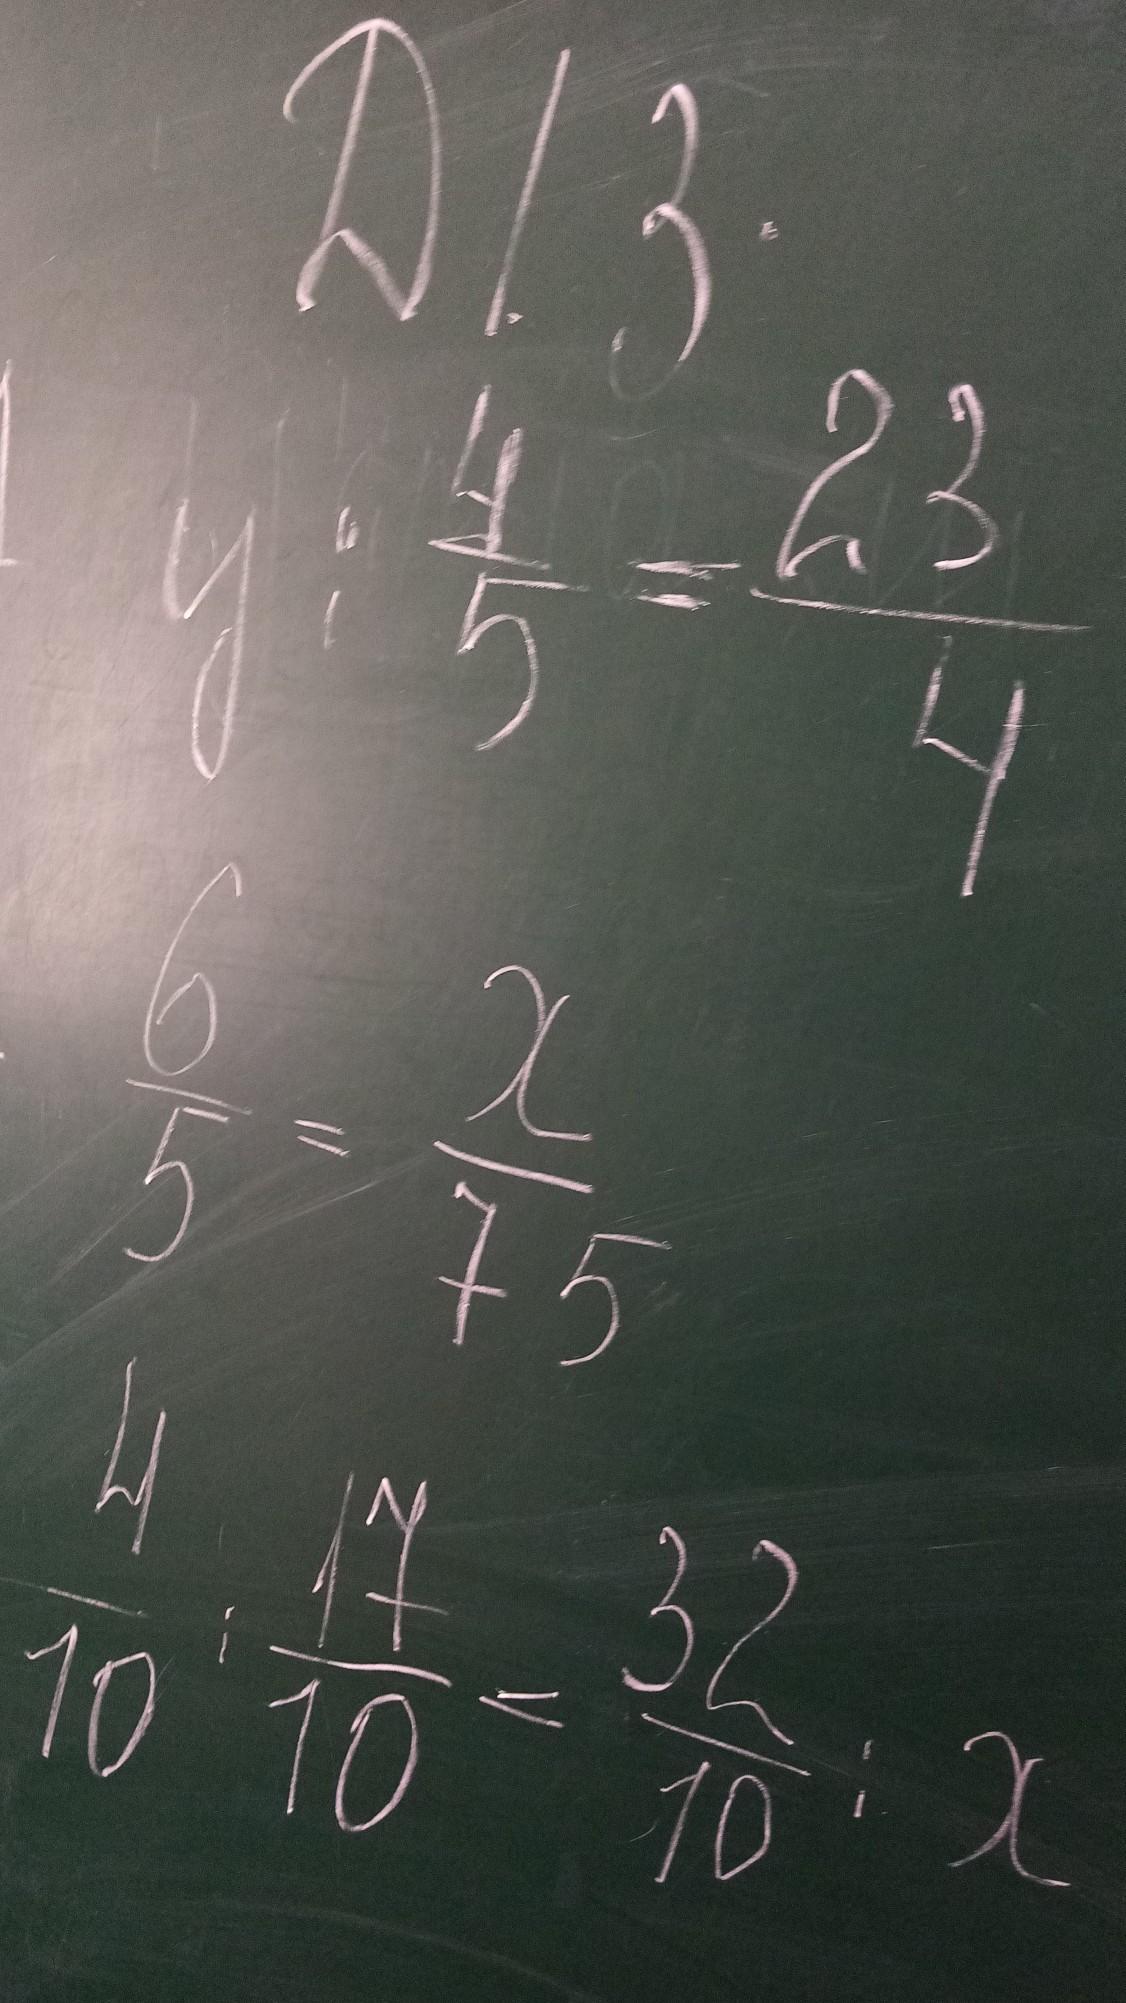 Д/З.
y : 4/5 = 23/4
6/5 = x/75
4/10 : 17/10 = 32/10 : x